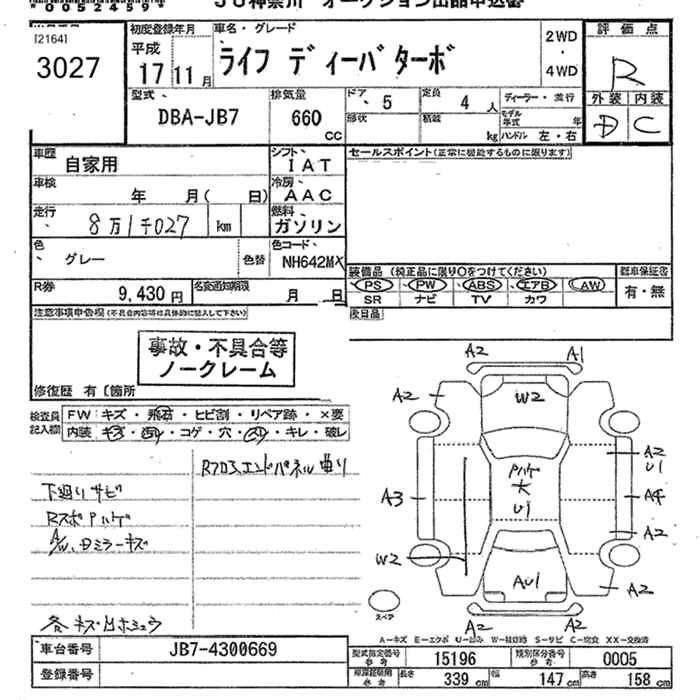 00052459
JU神奈川 オークション出品申込書
[2164]
3027
初度登録年月
平成
17 11 月
車名・グレード
ライフ ディーバターボ
2WD
・
4WD
評価点
R
外装 内装
D C
型式
DBA-JB7
排気量
660
CC
ドア
5
定員
4 人
ディーラー・並行
形状
積載
kg
モデル年式
年
ハンドル 左・右
車歴
自家用
シフト
IAT
セールスポイント(正常に機能するものに限ります)
車検
年 月( 日)
冷房
AAC
走行
8万1千027 km
燃料
ガソリン
色
グレー
色替
色コード
NH642MX
装備品 (純正品に限り○をつけてください)
PS PW ABS エアB AW
SR ナビ TV カワ
新車保証書
有・無
R券
9,430 円
名変通知期限
月 日
後日品
注意事項申告欄(不具合内容等は具体的に記入して下さい)
事故・不具合等
ノークレーム
修復歴 有〔箇所
検査員
記入欄
FW:キズ・飛石・ヒビ割・リペア跡・×要
内装:キズ・汚れ・コゲ・穴・スレ・キレ・破レ
Rフロア、エンドパネル曲り
下廻りサビ
RスポPハゲ
A/W、Dミラーキズ
各キズ凹ホシュウ
A2 A1
A2 W2
A2
U1
Pハゲ
大
U1
A3 A4
A2
W2
AU1
A2
A2 A2
スペア
A－キズ E－エクボ U－凹み W－補修跡 S－サビ C－腐食 XX－交換済
車台番号
JB7-4300669
登録番号
型式指定番号
参考
15196
類別区分番号
参考
0005
参考
長さ
339 cm
幅
147 cm
高さ
158 cm